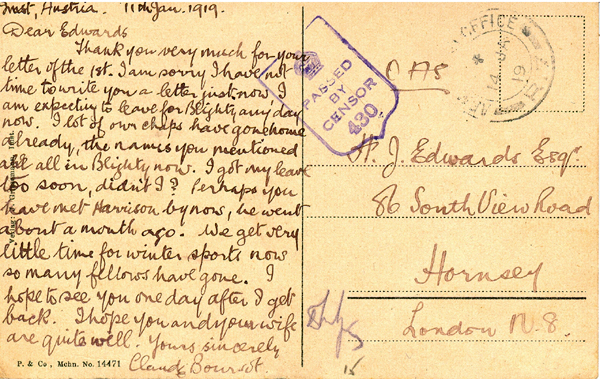 Imst, Austria. 11th Jan. 1919.
Dear Edwards
Thank you very much for your
letter of the 1st. I am sorry I have not
time to write you a letter just now I
am expecting to leave for Blighty any day
now. A lot of our chaps have gone home
already, the names you mentioned
are all in Blighty now. I got my leave
too soon, didn't I? Perhaps you
have met Harrison by now, he went
about a month ago. We get very
little time for winter sports now
so many fellows have gone. I
hope to see you one day after I get
back. I hope you and your wife
are quite well. Yours sincerely
Claude Boursot.
P. & Co, Mchn. No. 14471
PASSED
BY
CENSOR
430
OFFICE
14 JA
19
OAS
J. Edwards Esqr.
86 South View Road
Hornsey
London N. 8.